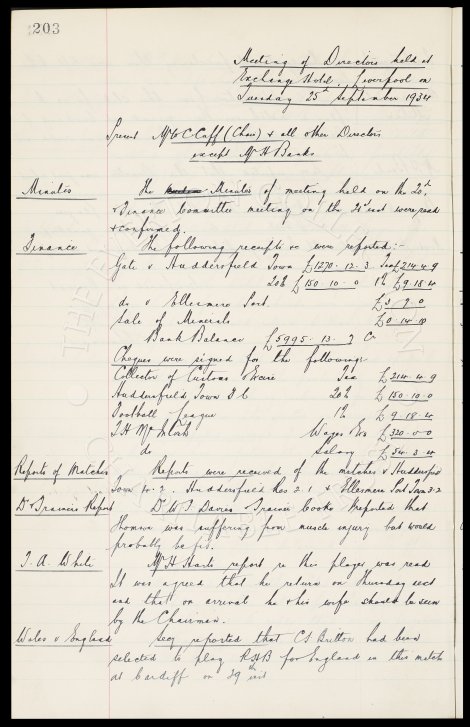 203
Meeting of Directors held at
Exchange Hotel, Liverpool on
Tuesday 25th September 1934
Present Mr W C Cuff (Chair) & all other Directors
except Mr H Banks
Minutes The Minutes of meeting held on the 20th
& Finance Committee meeting on the 21st inst were read
& confirmed.
Finance The following receipts &c were reported:-
Gate v Huddersfield Town £1270.12.3 Tax £214.4.9
20% £150.10.0 1% £9.18.4
do v Ellesmere Port £3.7.0
Sale of Minerals £0.14.10
Bank Balance £5995.13.7 Cr
Cheques were signed for the following:-
Collector of Customs & Excise Tax £214.4.9
Huddersfield Town F C 20% £150.10.0
Football League 1% £9.18.4
T.H. McIntosh Wages &c £320.0.0
do Salary £34.3.4
Reports of Matches Reports were received of the matches v Huddersfield
Town 4.2. Huddersfield Res 2.1 & Ellesmere Port Town 3.2
Dr & Trainers Report Dr W.J. Davies & Trainer Cooke reported that
Thomson was suffering from muscle injury but would
probably be fit.
T. A. White Mr H Harts report re this player was read
It was agreed that he return on Thursday next
and that on arrival he & his wife should be seen
by the Chairman.
Wales v England Secy reported that C S Britton had been
selected to play R.H.B for England in this match
at Cardiff on 29th inst